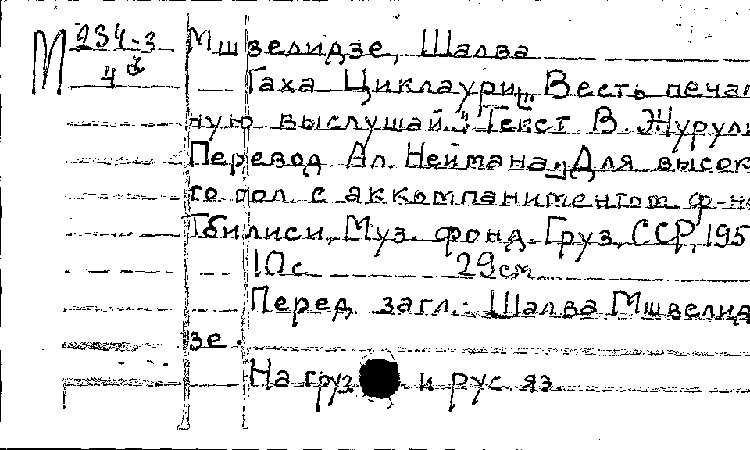 М 234-3
4
Мшвелидзе, Шалва
Таха Циклаури. Весть печаль
ную выслушай. Текст В. Журули
Перевод Ал. Неймана. Для высок
го гол. с аккомпаниментом ф-но
Тбилиси, Муз. фонд. Груз. ССР, 195
10 с. 29 см.
Перед загл.: Шалва Мшвелид
зе.
На груз. и рус. яз.